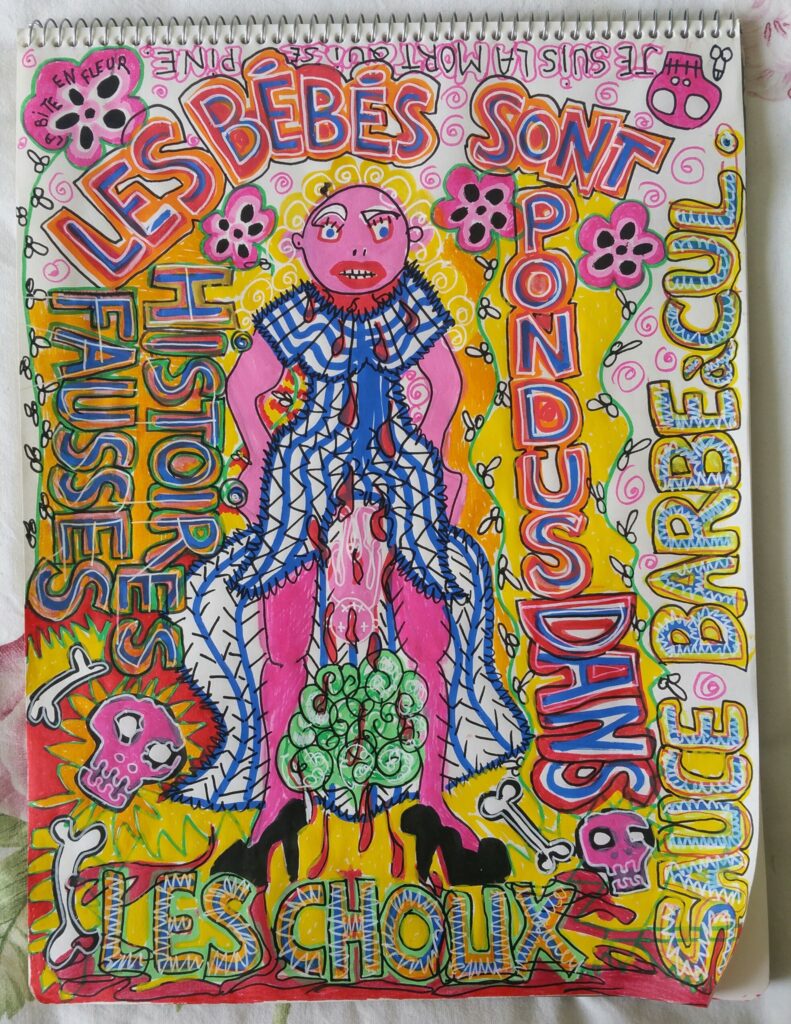 JE SUIS LA MORT QUI SE PINE.
LA BITE EN FLEUR
LES BÉBÉS SONT
PONDUS DANS
LES CHOUX
HISTOIRES
FAUSSES
SAUCE BARBE à CUL.